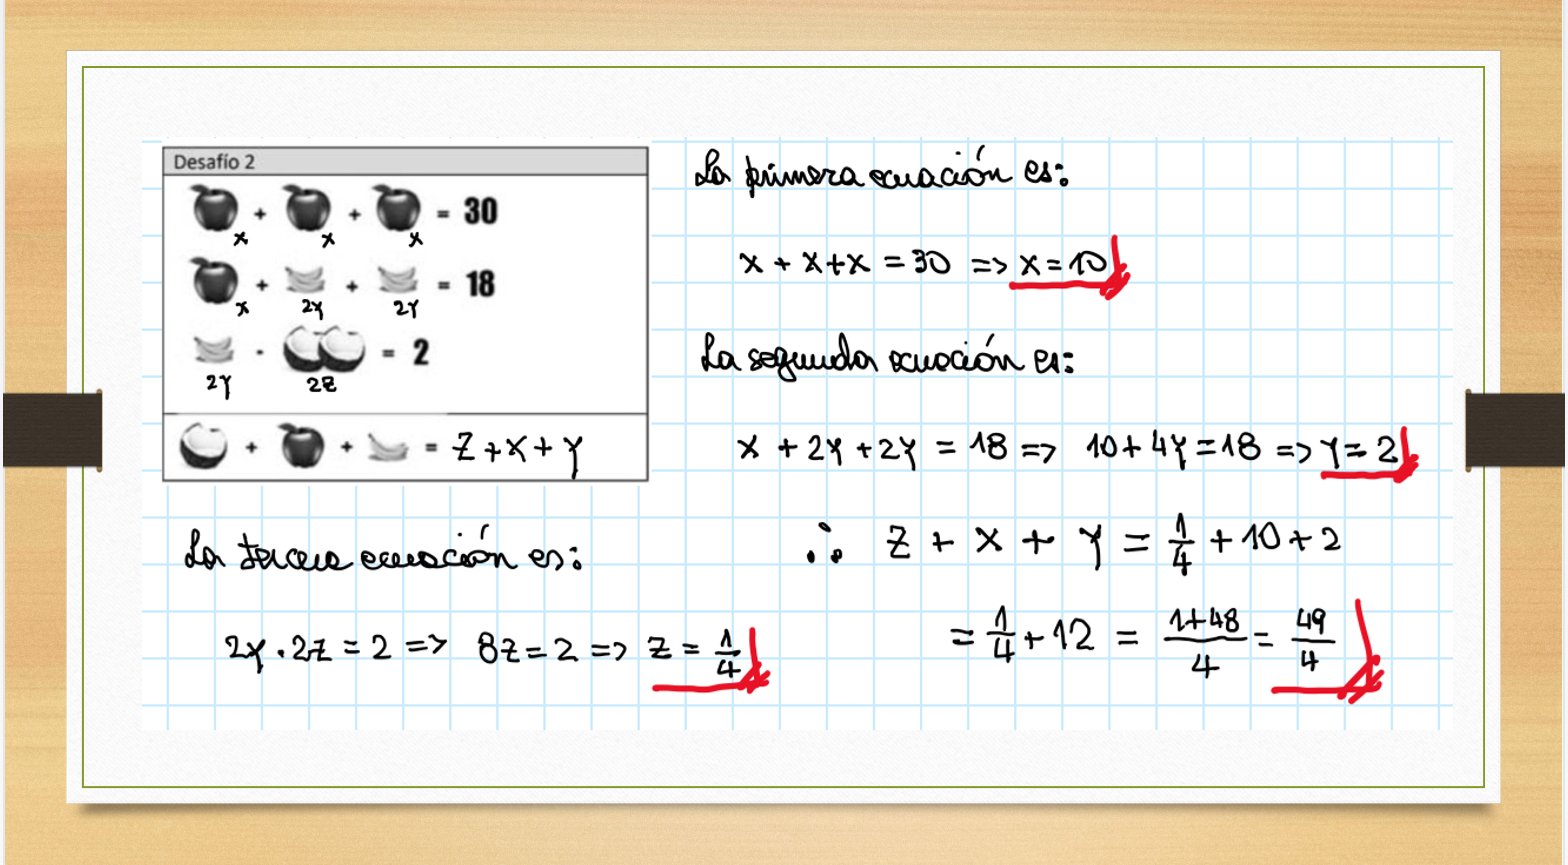 Desafío 2
+ + = 30
x x x
+ + = 18
x 2y 2y
· = 2
2y 2z
+ + = z + x + y
La primera ecuación es:
x + x + x = 30 => x = 10
La segunda ecuación es:
x + 2y + 2y = 18 => 10 + 4y = 18 => y = 2
La tercera ecuación es:
2y . 2z = 2 => 8z = 2 => z = 1/4
∴ z + x + y = 1/4 + 10 + 2
= 1/4 + 12 = (1+48)/4 = 49/4